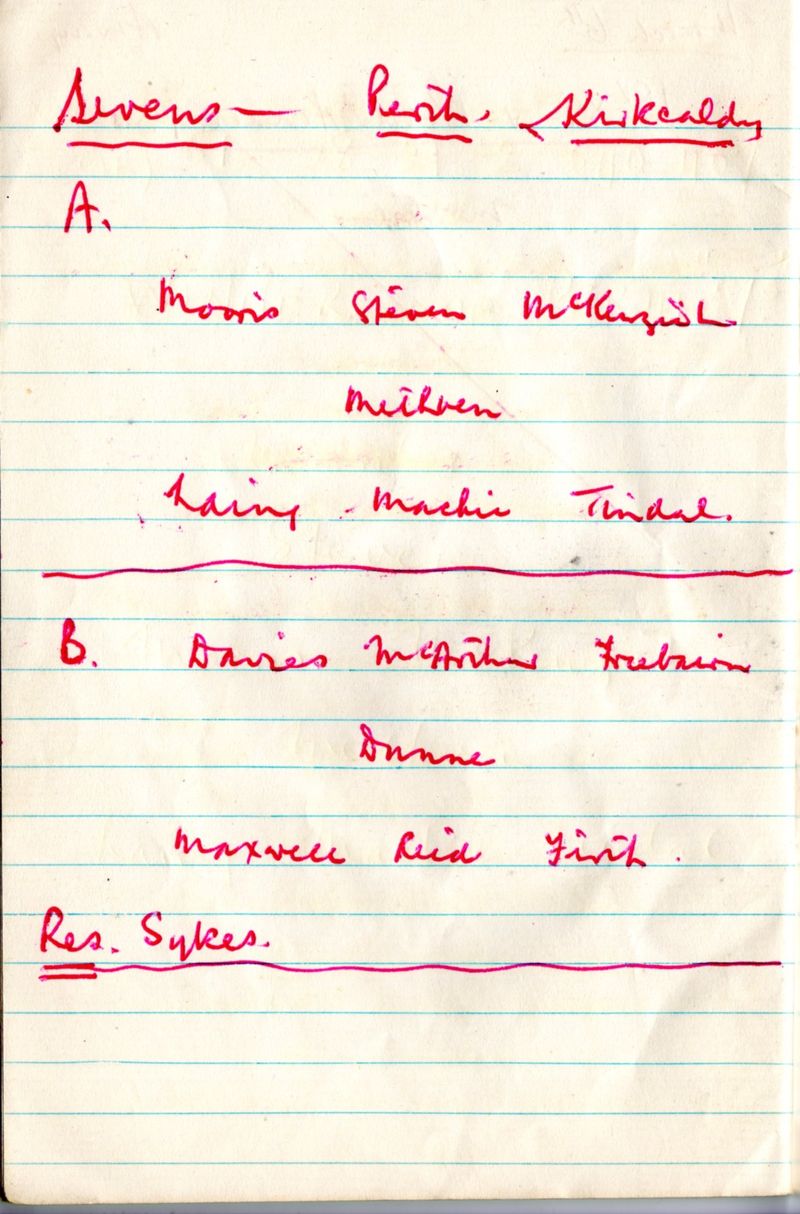 Sevens — Perth. & Kirkcaldy
A.
Morris Steven McKenzie
Methven
Laing Mackie Tindal.
B. Davies McArthur Freebairn
Dunne
Maxwell Reid Firth.
Res. Sykes.